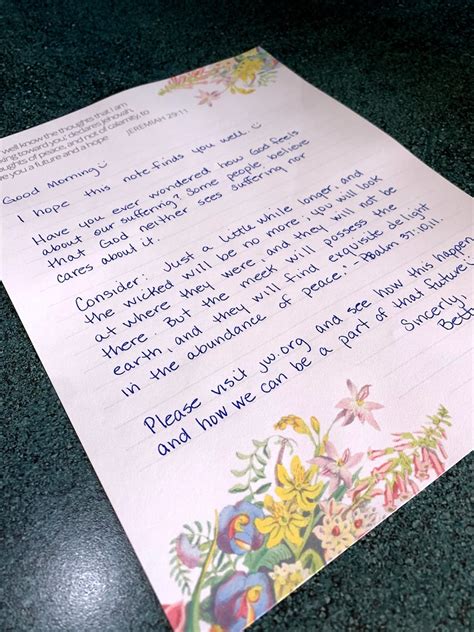 well know the thoughts that I am
king toward you,' declares Jehovah,
oughts of peace, and not of calamity, to
ve you a future and a hope
JEREMIAH 29:11
Good Morning
I hope this note finds you well.
Have you ever wondered how God feels
about our suffering? Some people believe
that God neither sees suffering nor
cares about it.
Consider: Just a little while longer, and
the wicked will be no more; you will look
at where they were, and they will not be
there. But the meek will possess the
earth, and they will find exquisite delight
in the abundance of peace." -Psalm 37:10,11.
Please visit jw.org and see how this happen
and how we can be a part of that future
Sincerly,